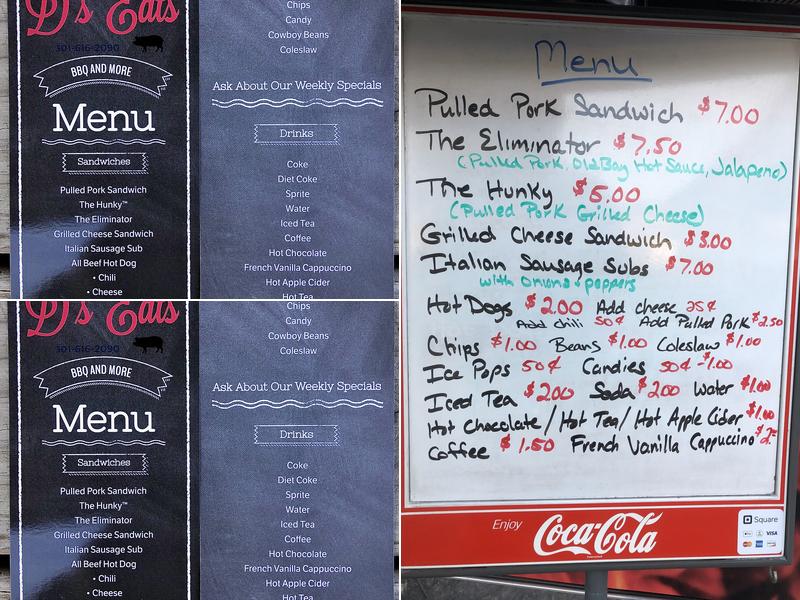 D's Eats
301-616-2090
BBQ AND MORE
Menu
Sandwiches
Pulled Pork Sandwich
The Hunky™
The Eliminator
Grilled Cheese Sandwich
Italian Sausage Sub
All Beef Hot Dog
• Chili
• Cheese
Chips
Candy
Cowboy Beans
Coleslaw
Ask About Our Weekly Specials
Drinks
Coke
Diet Coke
Sprite
Water
Iced Tea
Coffee
Hot Chocolate
French Vanilla Cappuccino
Hot Apple Cider
Hot Tea
D's Eats
301-616-2090
BBQ AND MORE
Menu
Sandwiches
Pulled Pork Sandwich
The Hunky™
The Eliminator
Grilled Cheese Sandwich
Italian Sausage Sub
All Beef Hot Dog
• Chili
• Cheese
Chips
Candy
Cowboy Beans
Coleslaw
Ask About Our Weekly Specials
Drinks
Coke
Diet Coke
Sprite
Water
Iced Tea
Coffee
Hot Chocolate
French Vanilla Cappuccino
Hot Apple Cider
Hot Tea
Menu
Pulled Pork Sandwich $7.00
The Eliminator $7.50
(Pulled Pork, Old Bay Hot Sauce, Jalapeno)
The Hunky $5.00
(Pulled Pork Grilled Cheese)
Grilled Cheese Sandwich $3.00
Italian Sausage Subs $7.00
with onions + peppers
Hot Dogs $2.00 Add cheese 25¢
Add chili 50¢ Add Pulled Pork $2.50
Chips $1.00 Beans $1.00 Coleslaw $1.00
Ice Pops 50¢ Candies 50¢-$1.00
Iced Tea $2.00 Soda $2.00 Water $1.00
Hot Chocolate / Hot Tea / Hot Apple Cider $1.00
Coffee $1.50 French Vanilla Cappuccino $2=
Enjoy
Coca-Cola
Square
VISA